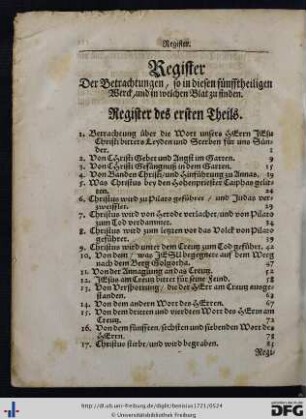 Register.
Register
Der Betrachtungen, so in diesen fünfftheiligen
Werck, und in welchen Blat zu finden.
Register des ersten Theils.
1. Betrachtung über die Wort unsers HErrn JEsu
Christi bitters Leyden und Sterben für uns Sün-
der. 1
2. Von Christi Gebet und Angst im Garten. 9
3. Von Christi Gefängniß in dem Garten. 15
4. Von Banden Christi, und Hinführung zu Annas. 19
5. Was Christus bey den Hohenpriester Caiphas gelit-
ten. 24
6. Christus wird zu Pilato geführet / und Judas ver-
zweiffler. 29
7. Christus wird von Herode verlachet, und von Pilato
zum Tod verdammet. 34
8. Christus wird zum letzten vor das Volck von Pilato
geführet. 39
9. Christus wird unter dem Creutz zum Tod geführt. 42
10. Von dem, was JESU begegnete auf dem Weeg
nach dem Berg Golgotha. 47
11. Von der Annaglung an das Creutz. 52
12. JEsus am Creutz bittet für seine Feind. 58
13. Von Verspottung, die der HErr am Creutz ausge-
standen. 62
14. Von dem andern Wort des HErren. 67
15. Von dem dritten und vierdten Wort des HErrn am
Creutz. 72
16. Von dem fünfften, sechsten und siebenden Wort des
HErrn. 78
17. Christus stirbt, und wird begraben. 83
Regi-
http://dl.ub.uni-freiburg.de/diglit/benisius1721/0524
© Universitätsbibliothek Freiburg
gefördert durch die
DFG